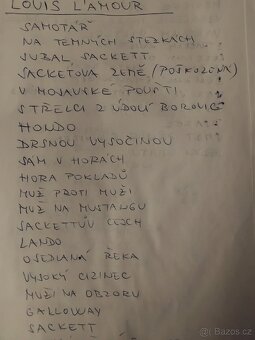 LOUIS L'AMOUR
SAMOTÁŘ
NA TEMNÝCH STEZKÁCH
JUBAL SACKETT
SACKETOVA ZEMĚ (POŠKOZENÁ)
V MOJAVSKÉ POUŠTI
STŘELCI Z ÚDOLÍ BOROVIC
HONDO
DRSNOU VYSOČINOU
SÁM V HORÁCH
HORA POKLADŮ
MUŽ PROTI MUŽI
MUŽ NA MUSTANGU
SACKETTŮV CEJCH
LANDO
OSEDLANÁ ŘEKA
VYSOKÝ CIZINEC
MUŽI NA OBZORU
GALLOWAY
SACKETT
Sbazar.cz